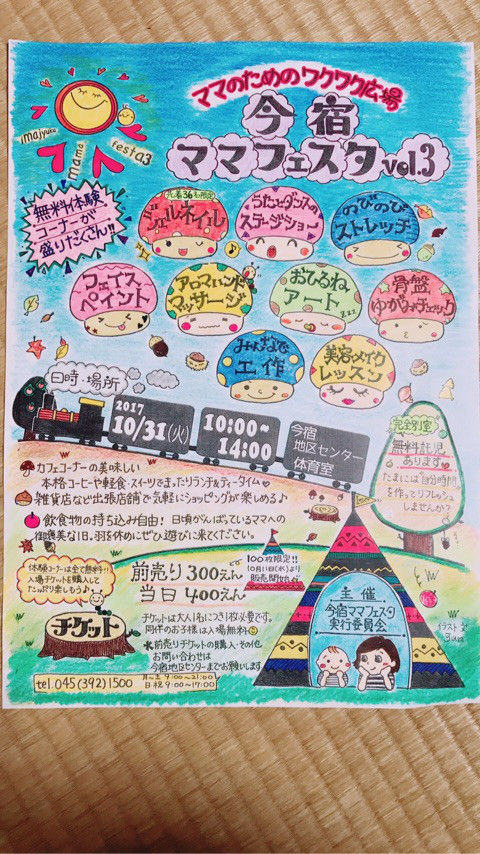 ママのためのワクワク広場
今宿
ママフェスタ vol.3
imajyuku
mama
festa3
無料体験
コーナーが
盛りだくさん!!
先着36名限定
ジェルネイル
うたとダンスの
ステージショー
のびのび
ストレッチ
フェイス
ペイント
アロマハンド
マッサージ
おひるね
アート
zzz
骨盤
ゆがみチェック
みんなで
工作
美容メイク
レッスン
日時・場所
2017
10/31(火)
10:00~
14:00
今宿
地区センター
体育室
完全別室
無料託児
あります
たまには自分時間
を作ってリフレッシュ
しませんか?
カフェコーナーの美味しい
本格コーヒーや軽食・スイーツでまったりランチ&ティータイム♥
雑貨店など出張店舗で気軽にショッピングが楽しめる♪
飲食物の持ち込み自由!日頃がんばっているママへの
御褒美な1日。羽を休めにぜひ遊びに来てください。
体験コーナーは全て無料!!
入場チケットを購入して
たっぷり楽しもう♪
チケット
前売り 300えん
当日 400えん
100枚限定!!
10月11日(水)より
販売開始
チケットは大人1名につき1枚必要です。
同伴のお子様は入場無料
※前売りチケットの購入・その他
お問い合わせは
今宿地区センターまでお願いします
tel.045(392)1500
月~土 9:00~21:00
日・祝 9:00~17:00
主催
今宿ママフェスタ
実行委員会
イラスト